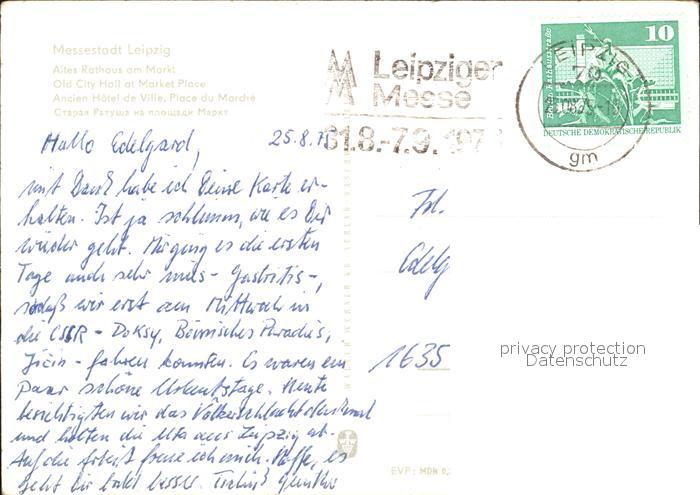 Messestadt Leipzig
Altes Rathaus am Markt
Old City Hall at Market Place
Ancien Hôtel de Ville, Place du Marché
Старая Ратуша на площади Маркт
Leipziger
Messe
31.8.-7.9. 197
LEIPZIG
70
gm
10
Berlin, Rathausstraße
DEUTSCHE DEMOKRATISCHE REPUBLIK
Hallo Edelgard, 25.8.75
mit Dank habe ich Deine Karte er-
halten. Ist ja schlimm, wie es Dir
wieder geht. Mir ging es die ersten
Tage auch sehr mies - Gastritis -,
sodaß wir erst am Mittwoch in
die CSSR - Doksy, Böhmisches Paradies,
Jičin - fahren konnten. Es waren ein
Paar schöne Urlaubstage. Heute
besichtigten wir das Völkerschlachtdenkmal
und holten die Uta aus Leipzig ab.
Auf die Arbeit freue ich mich. Hoffe, es
geht Dir bald besser. Tschüß Günther
Frl.
Edelg
1635
privacy protection
Datenschutz
EVP: MDN 0,